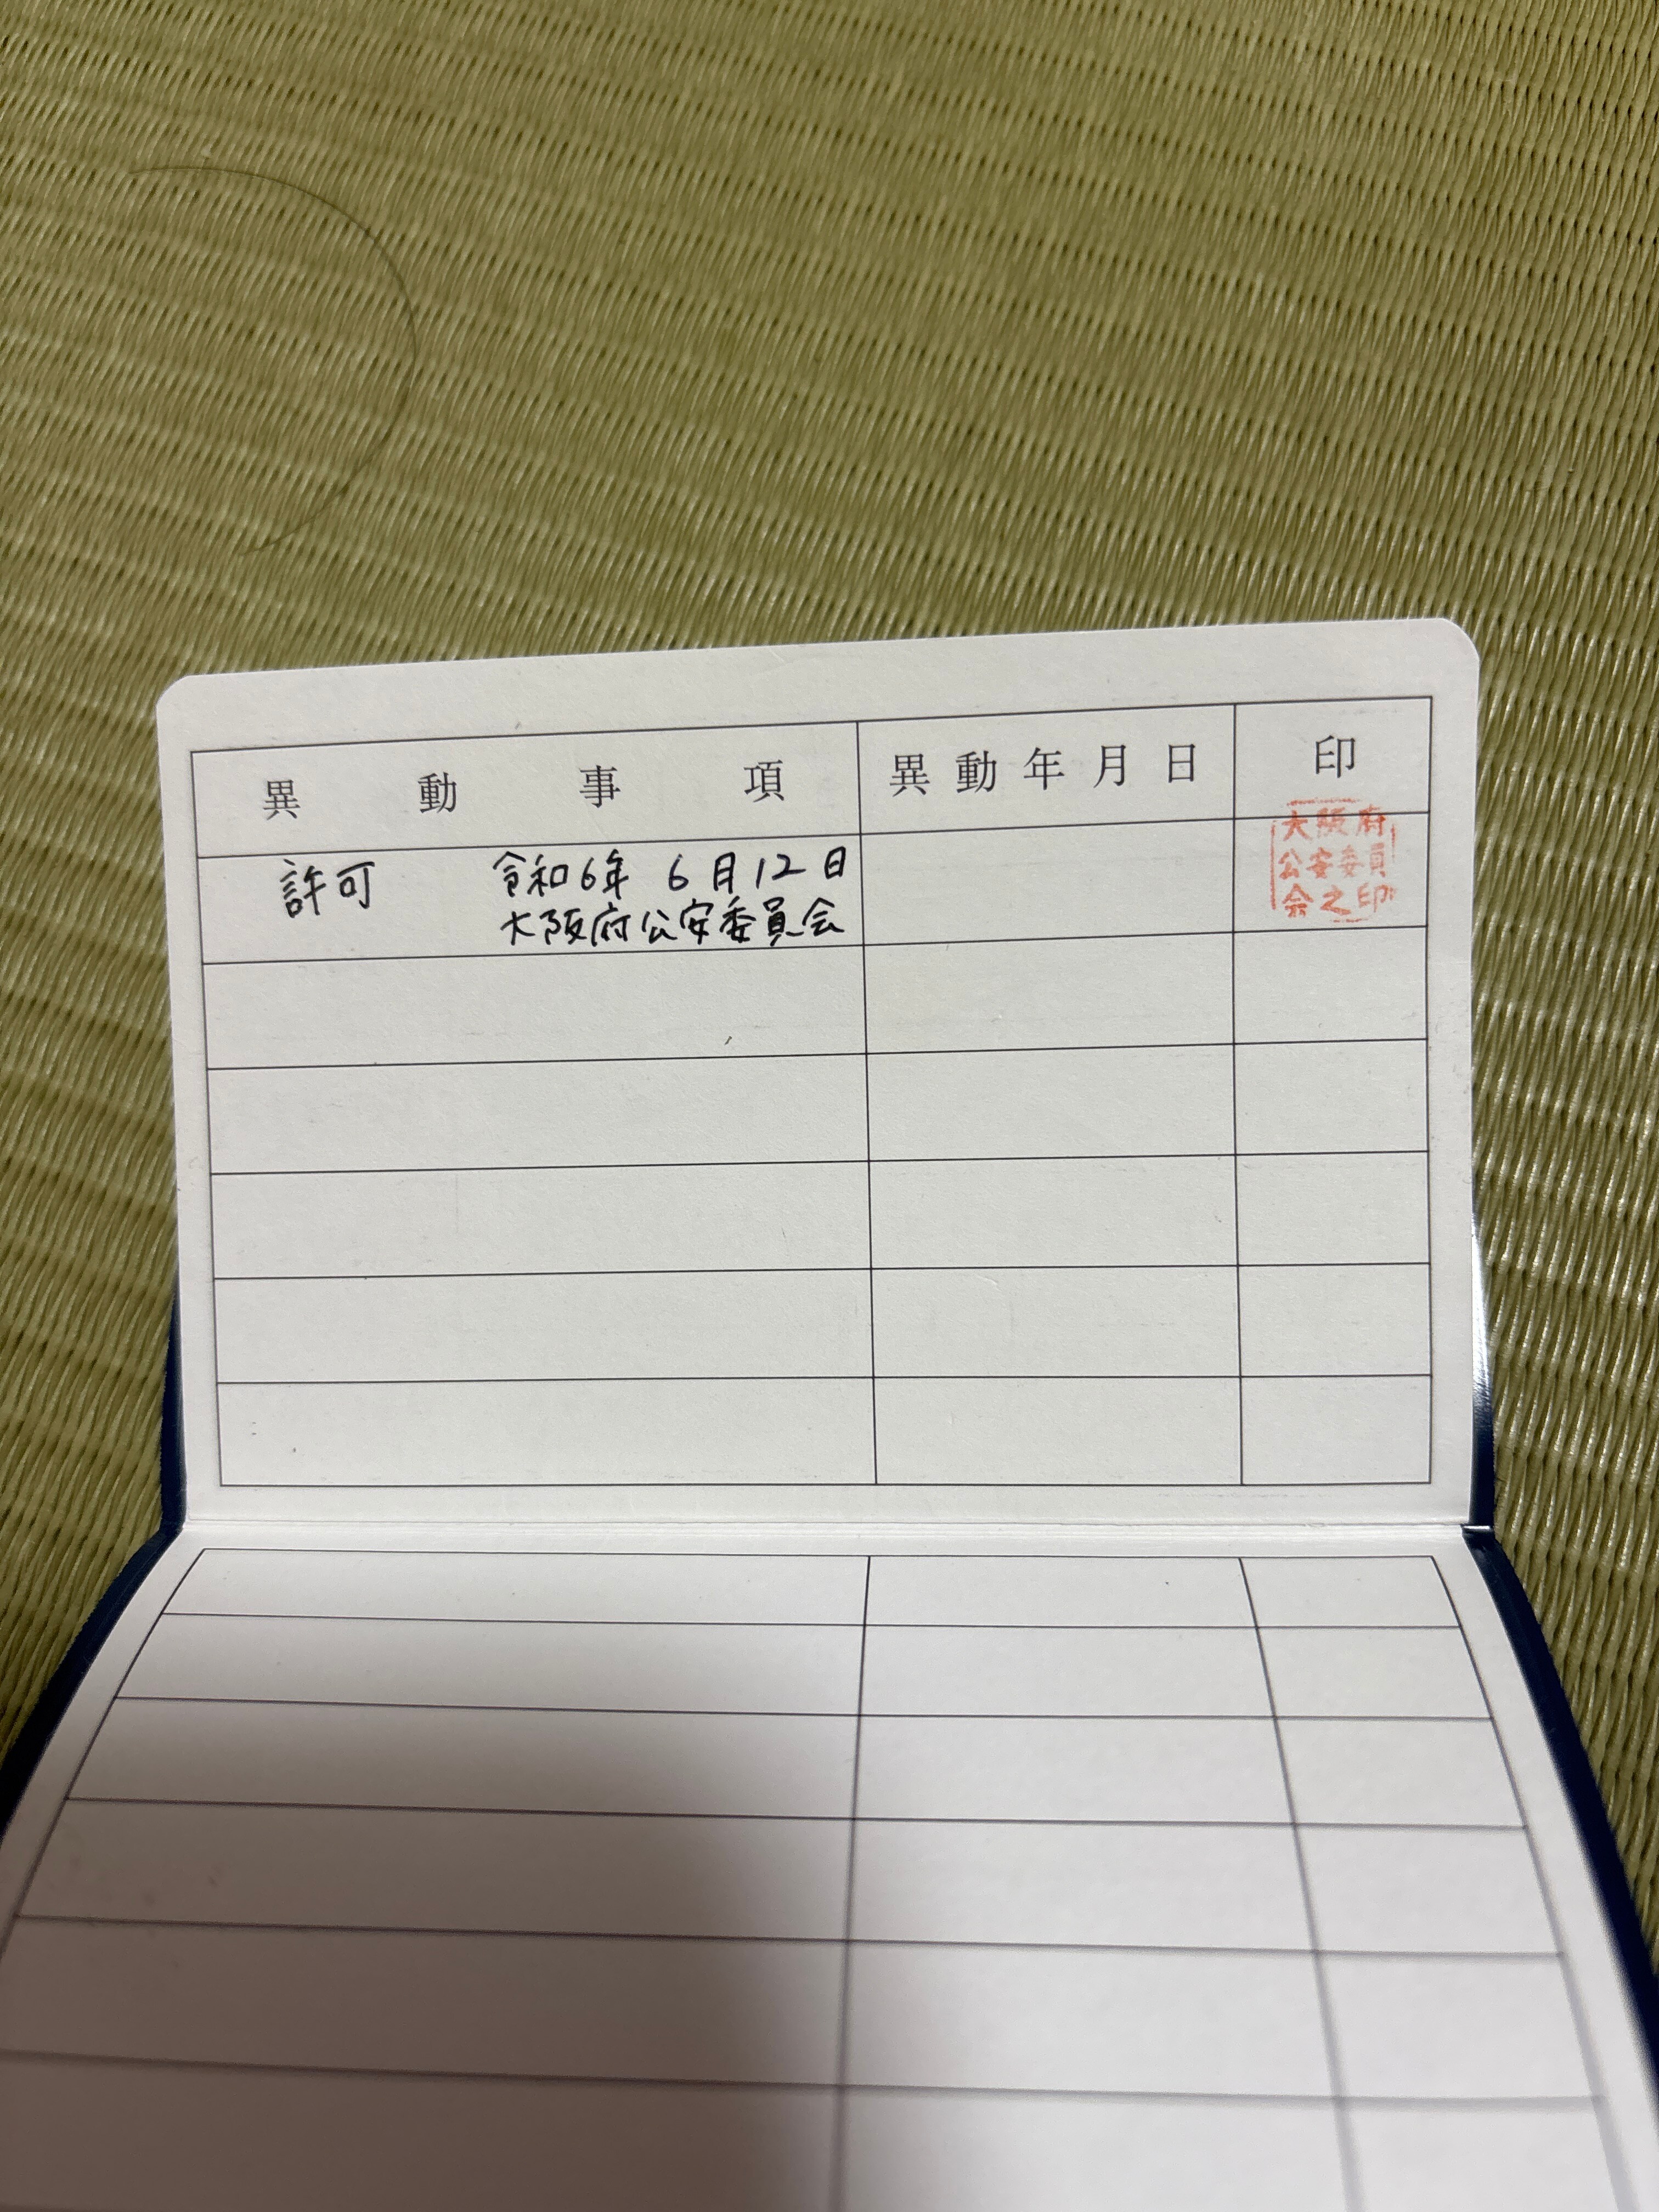 異動事項 異動年月日 印
許可 令和6年 6月12日
大阪府公安委員会
大阪府
公安委員
会之印